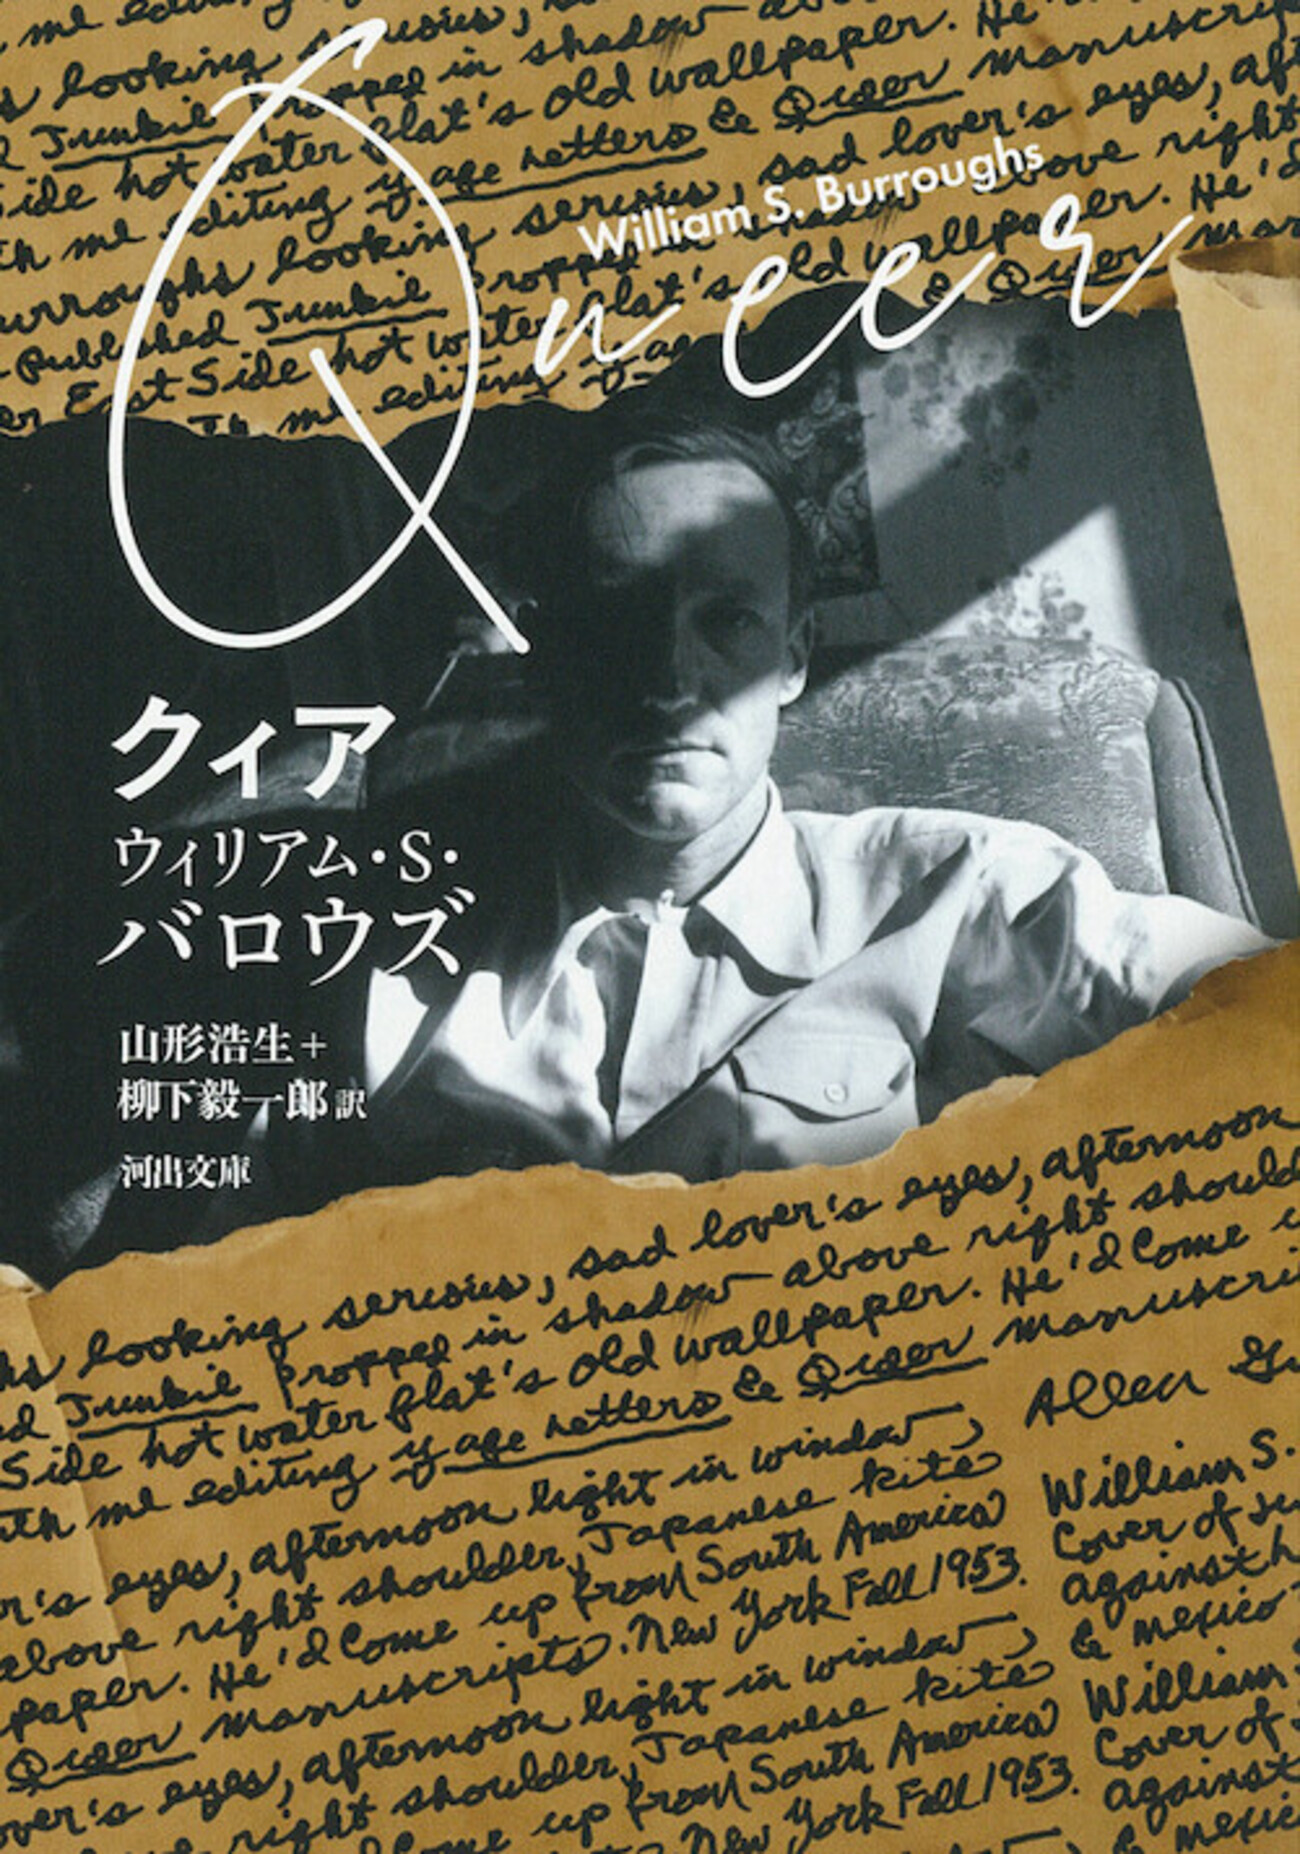 me editing
looking serious,
Junkie propped in shadow
Side hot water flat's old wallpaper. He
th me editing yage letters & Queer manuscrip
urroughs looking serious, sad lover's eyes, aft
published Junkie propped in shadow above right
er East Side hot water flat's old wallpaper. He'd
th me editing yage & Queer man
Queer
William S. Burroughs
クィア
ウィリアム・S・
バロウズ
山形浩生+
柳下毅一郎 訳
河出文庫
hs looking serious, sad lover's eyes, afternoon
ed Junkie propped in shadow above right should
Side hot water flat's old wallpaper. He'd come u
ith me editing yage letters & Queer manuscri
r's eyes, afternoon light in window, Allen Gi
above right shoulder, Japanese kite William S.
paper. He'd come up from South America Cover of Ju
Queer manuscripts. New York Fall 1953. against h
over's eyes, afternoon light in window, & Mexico
right shoulder, Japanese kite William
come up from South America Cover of
New York Fall 1953. against
& Mexic